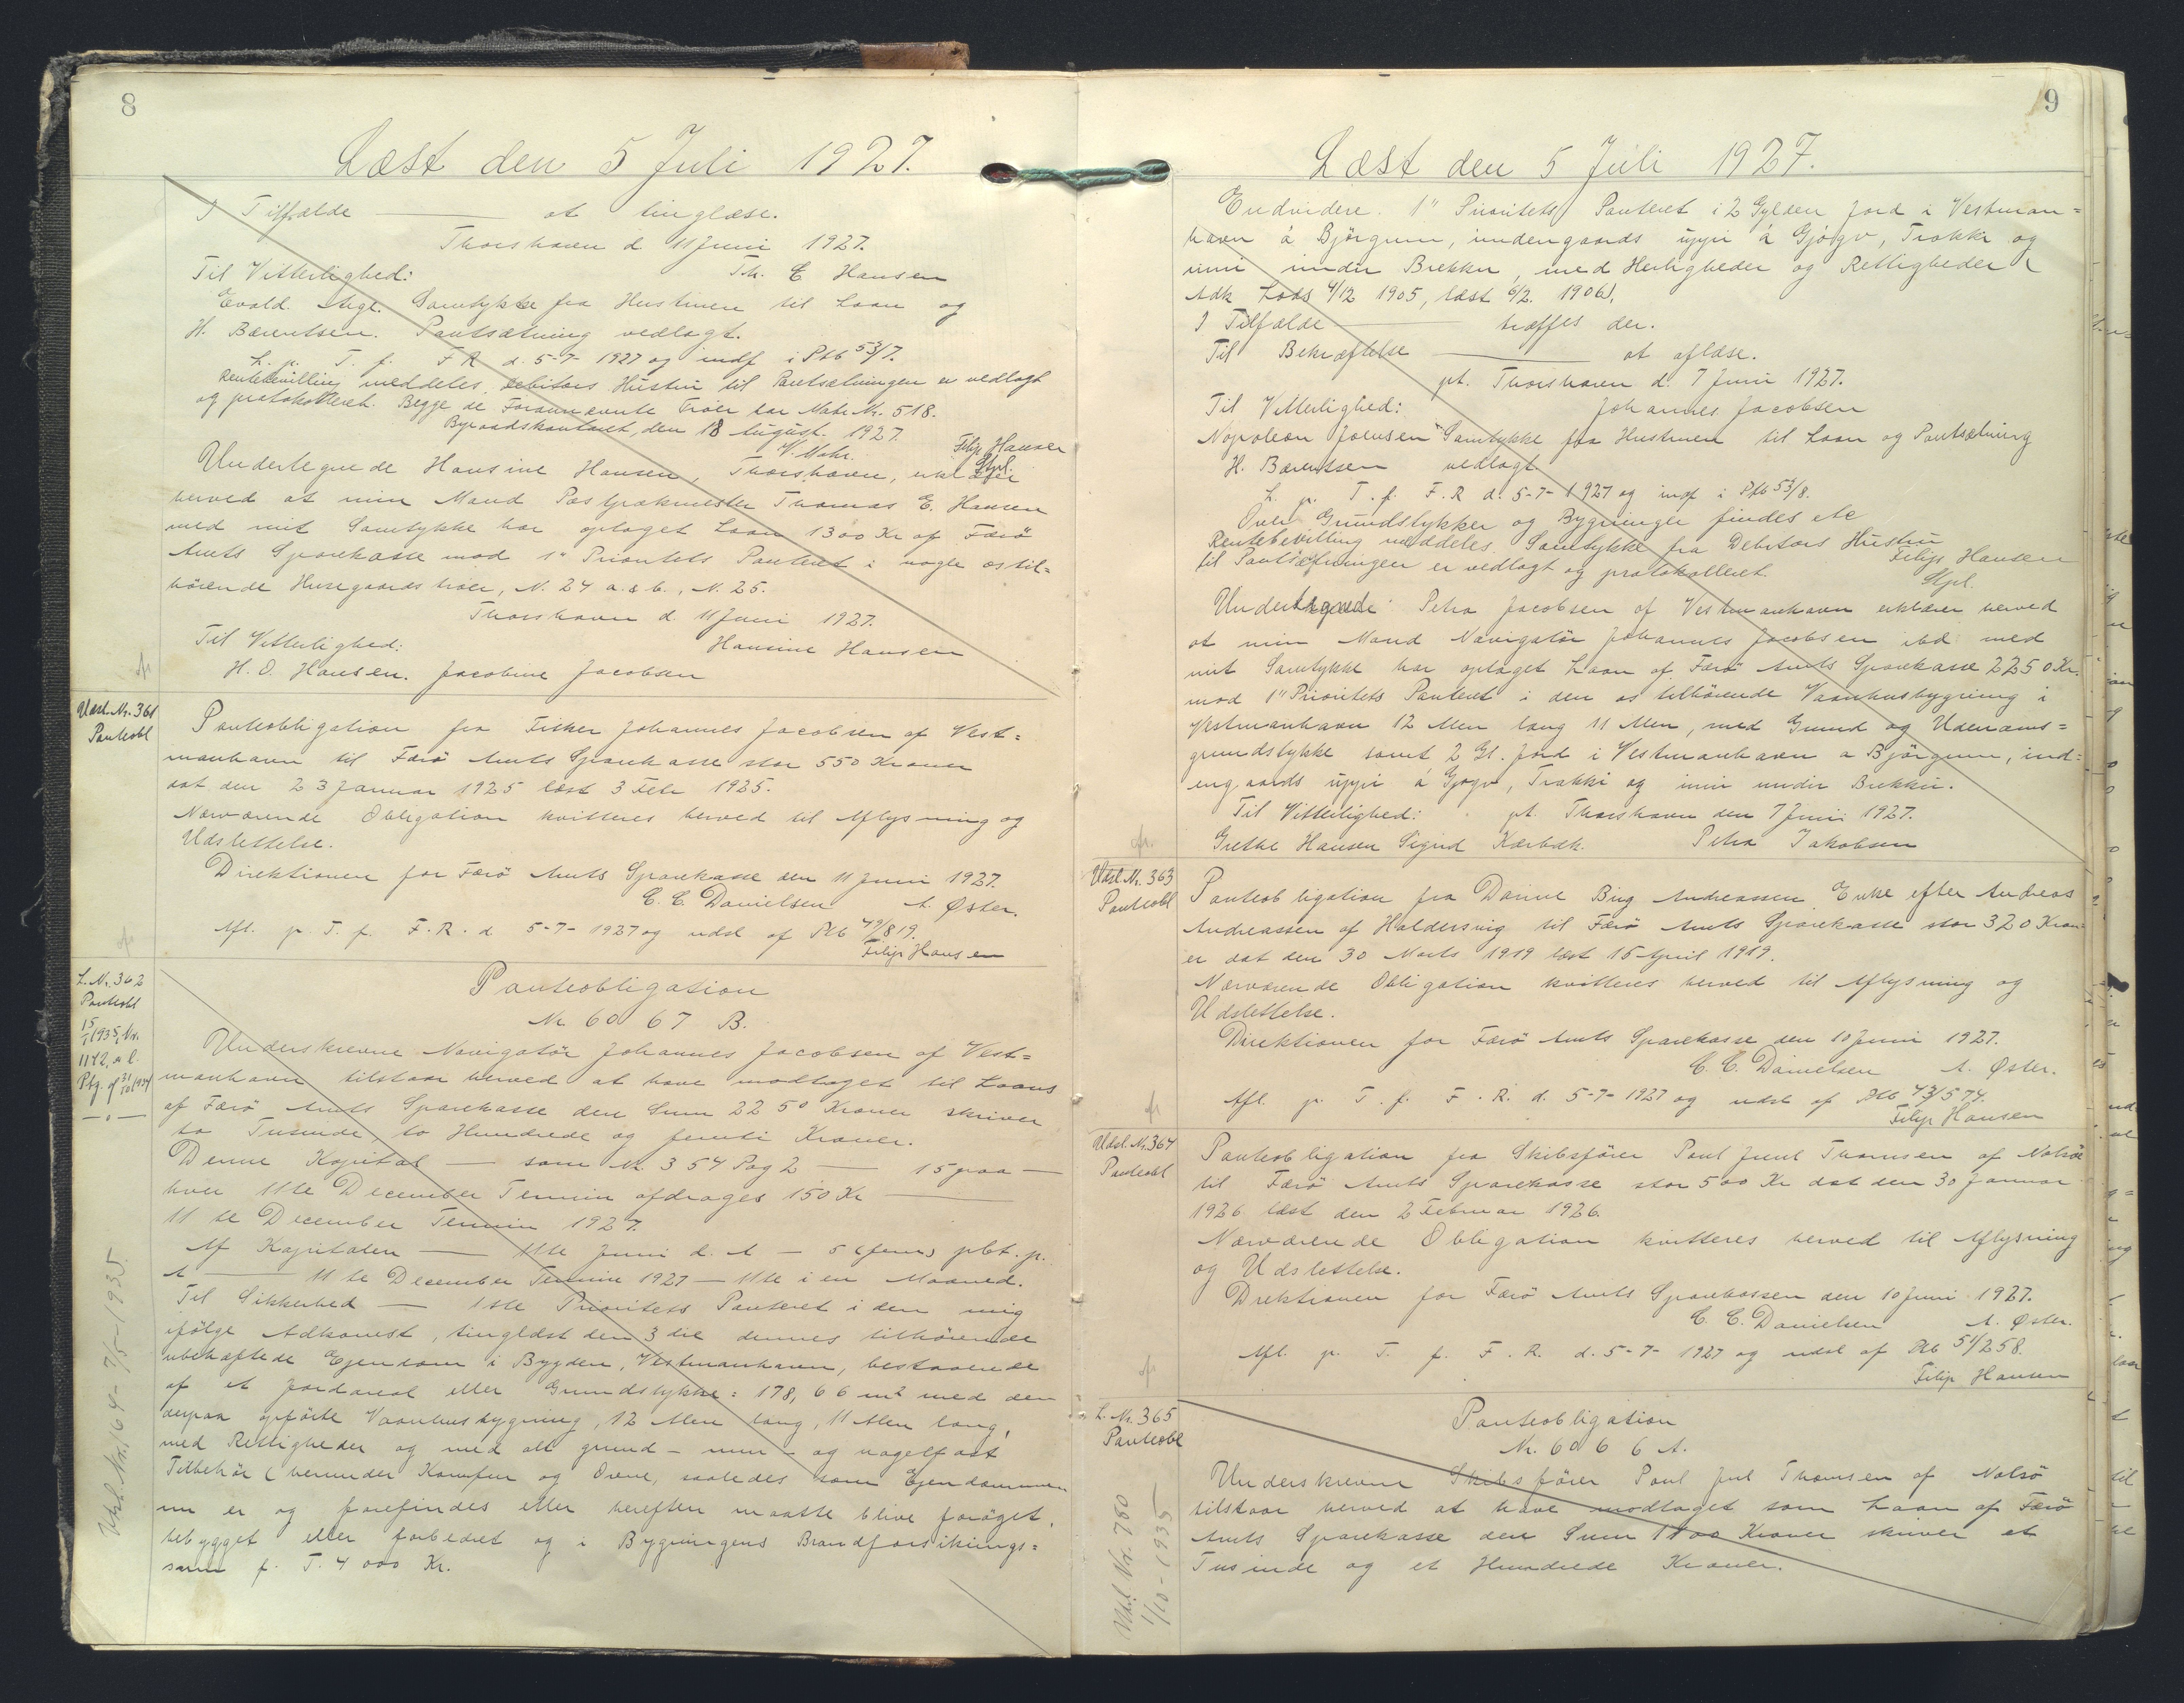 8
Læst den 5 Juli 1927.
I Tilfælde — at tinglæse.
Thorshavn d 11 Juni 1927.
Til Vitterlighed: Th. E Hansen
Evald Samtykke fra Hustruen til Laan og
H. Bærentsen. Pantsætning vedlagt.
L. p. T. f. F R d. 5-7- 1927 og indf i Ptb 53/7.
Rentebevilling meddeles, Debitors Hustru til Pantsætningen er vedlagt
og protokolleret. Begge de Forannævnte Tröer har Matr. Nr. 518.
Byraadskontoret, den 18 August. 1927. Filip Hansen
Stpl.
Undertegnede Hansine Hansen, Thorshavn, erklærer
herved at min Mand Postpakmester Thomas E. Hansen
med mit Samtykke har optaget Laan 1300 Kr af Færö
Amts Sparekasse mod 1" Prioritets Panteret i nogle os til=
hörende Husegaards tröer, N. 24 a. & b., N. 25.
Thorshavn d. 11 Juni 1927.
Til Vitterlighed: Hansine Hansen
H. O. Hansen. Jacobine Jacobsen
Udsl. Nr. 361
Panteobl
Panteobligation fra Fisker Johannes Jacobsen af Vest=
manhavn til Færö Amts Sparekasse stor 550 Kroner
dat den 23 Januar 1925 læst 3 Febr 1925.
Nærværende Obligation kvitteres herved til Aflysning og
Udslettelse.
Direktionen for Færö Amts Sparekasse den 11 Juni 1927.
C. C. Danielsen A. Øster.
Afl. p. T. f. F. R. d 5-7- 1927 og udsl af Ptb 49/819.
Filip Hansen
L. Nr. 362
Panteobl
15/1 1935, Nr.
1172, a l.
Ptg. af 31/10 1934
— o —
Panteobligation
Nr 60 67 B.
Underskrevne Navigatör Johannes Jacobsen af Vest=
manhavn tilstaar herved at have modtaget til Laans
af Færö Amts Sparekasse den Sum 2250 Kroner skriver
to Tusinde, to Hundrede og femti Kroner.
Denne Kapital — som Nr. 354 Pag 2 — 15 paa —
hver 11te December Termin afdrages 150 Kr —
11 te December Termin 1927.
Af Kapitalen — 11te Juni d. A — 5 (fem) pCt. p.
A — 11 te December Termin 1927 — 11te i en Maaned.
Til Sikkerhed — 1ste Prioritets Panteret i den mig
ifölge Adkomst, tinglæst den 3 die dennes tilhörende
ubehæftede Ejendom i Bygden, Vestmanhavn, bestaaende
af et Jordareal eller Grundstykke: 178,66 m² med den
derpaa opförte Vaanhusbygning, 12 Alen lang, 11 Alen lang,
med Rettigheder og med alt grund- mur- og nagelfast
Tilbehör (herunder Komfur og Ovne, saaledes som Ejendommen
nu er og forefindes eller herefter maatte blive foröget,
bebygget eller forbedret og i Bygningens Brandforsikrings=
sum p. T. 4000 Kr.
Udsl. Nr. 164 - 7/5-1935.
9
Læst den 5 Juli 1927.
Endvidere. 1" Prioritets Panteret i 2 Gylden Jord i Vestman=
havn á Björgum, indengaards uppi á Gjógv, Trøkki og
inni undir Brekku, med Herligheder og Rettigheder (
Adk Lods 4/12 1905, læst 6/2. 1906).
I Tilfælde — træffes der.
Til Bekræftelse — at aflæse.
pt. Thorshavn d. 7 Juni 1927.
Til Vitterlighed: Johannes Jacobsen
Napoleon Joensen Samtykke fra Hustruen til Laan og Pantsætning
H. Bærentsen vedlagt
L. p. T. f. F. R d. 5-7- 1927 og indf i Ptb 53/8.
Over Grundstykker og Bygninger findes etc
Rentebevilling meddeles. Samtykke fra Debitors Hustru
til Pantsætningen er vedlagt og protokolleret. Filip Hansen
Stpl.
Undertegnede Petra Jacobsen af Vestmanhavn erklærer herved
at min Mand Navigatör Johannes Jacobsen ibd. med
mit Samtykke har optaget Laan af Færö Amts Sparekasse 2250 Kr.
mod 1" Prioritets Panteret i den os tilhörende Vaanhusbygning i
Vestmanhavn 12 Alen lang 11 Alen, med Grund og Udenoms=
grundstykke samt 2 Gl. Jord i Vestmanhavn a Björgum, ind=
engaards uppi á Gjogv, Trøkki og inni undir Brekku.
Til Vitterlighed: pt. Thorshavn den 7 Juni 1927.
Grethe Hansen Sigrid Kærbæk. Petra Jakobsen
Udsl. Nr. 363
Panteobl
Panteobligation fra Enke efter Andreas
Andreassen af Haldersvig til Færö Amts Sparekasse stor 320 Kron
er dat den 30 Marts 1919 læst 15 April 1919.
Nærværende Obligation kvitteres herved til Aflysning og
Udslettelse.
Direktionen for Færö Amts Sparekasse den 10 Juni 1927.
C. C. Danielsen A. Øster.
Afl. p. T. f. F. R. d. 5-7- 1927 og udsl af Ptb 43/574.
Filip Hansen
Udsl. Nr. 364
Panteobl
Panteobligation fra Skibsförer Poul Juul Thomsen af Nolsö
til Færö Amts Sparekasse stor 500 Kr dat den 30 Januar
1926 læst den 2 Februar 1926.
Nærværende Obligation kvitteres herved til Aflysning
og Udslettelse.
Drektionen for Færö Amts Sparekassen den 10 Juni 1927.
C. C. Danielsen A. Øster.
Afl. p. T. f. F. R. d. 5-7- 1927 og udsl af Ptb 51/258.
Filip Hansen
L. Nr. 365
Panteobl
Panteobligation
Nr. 60 6 6 A.
Underskrevne Skibsförer Poul Juul Thomsen af Nolsö
tilstaar herved at have modtaget som Laan af Færö
Amts Sparekasse den Sum 1100 Kroner skriver et
Tusinde og et Hundrede Kroner.
Udsl. Nr. 760
1/10-1935